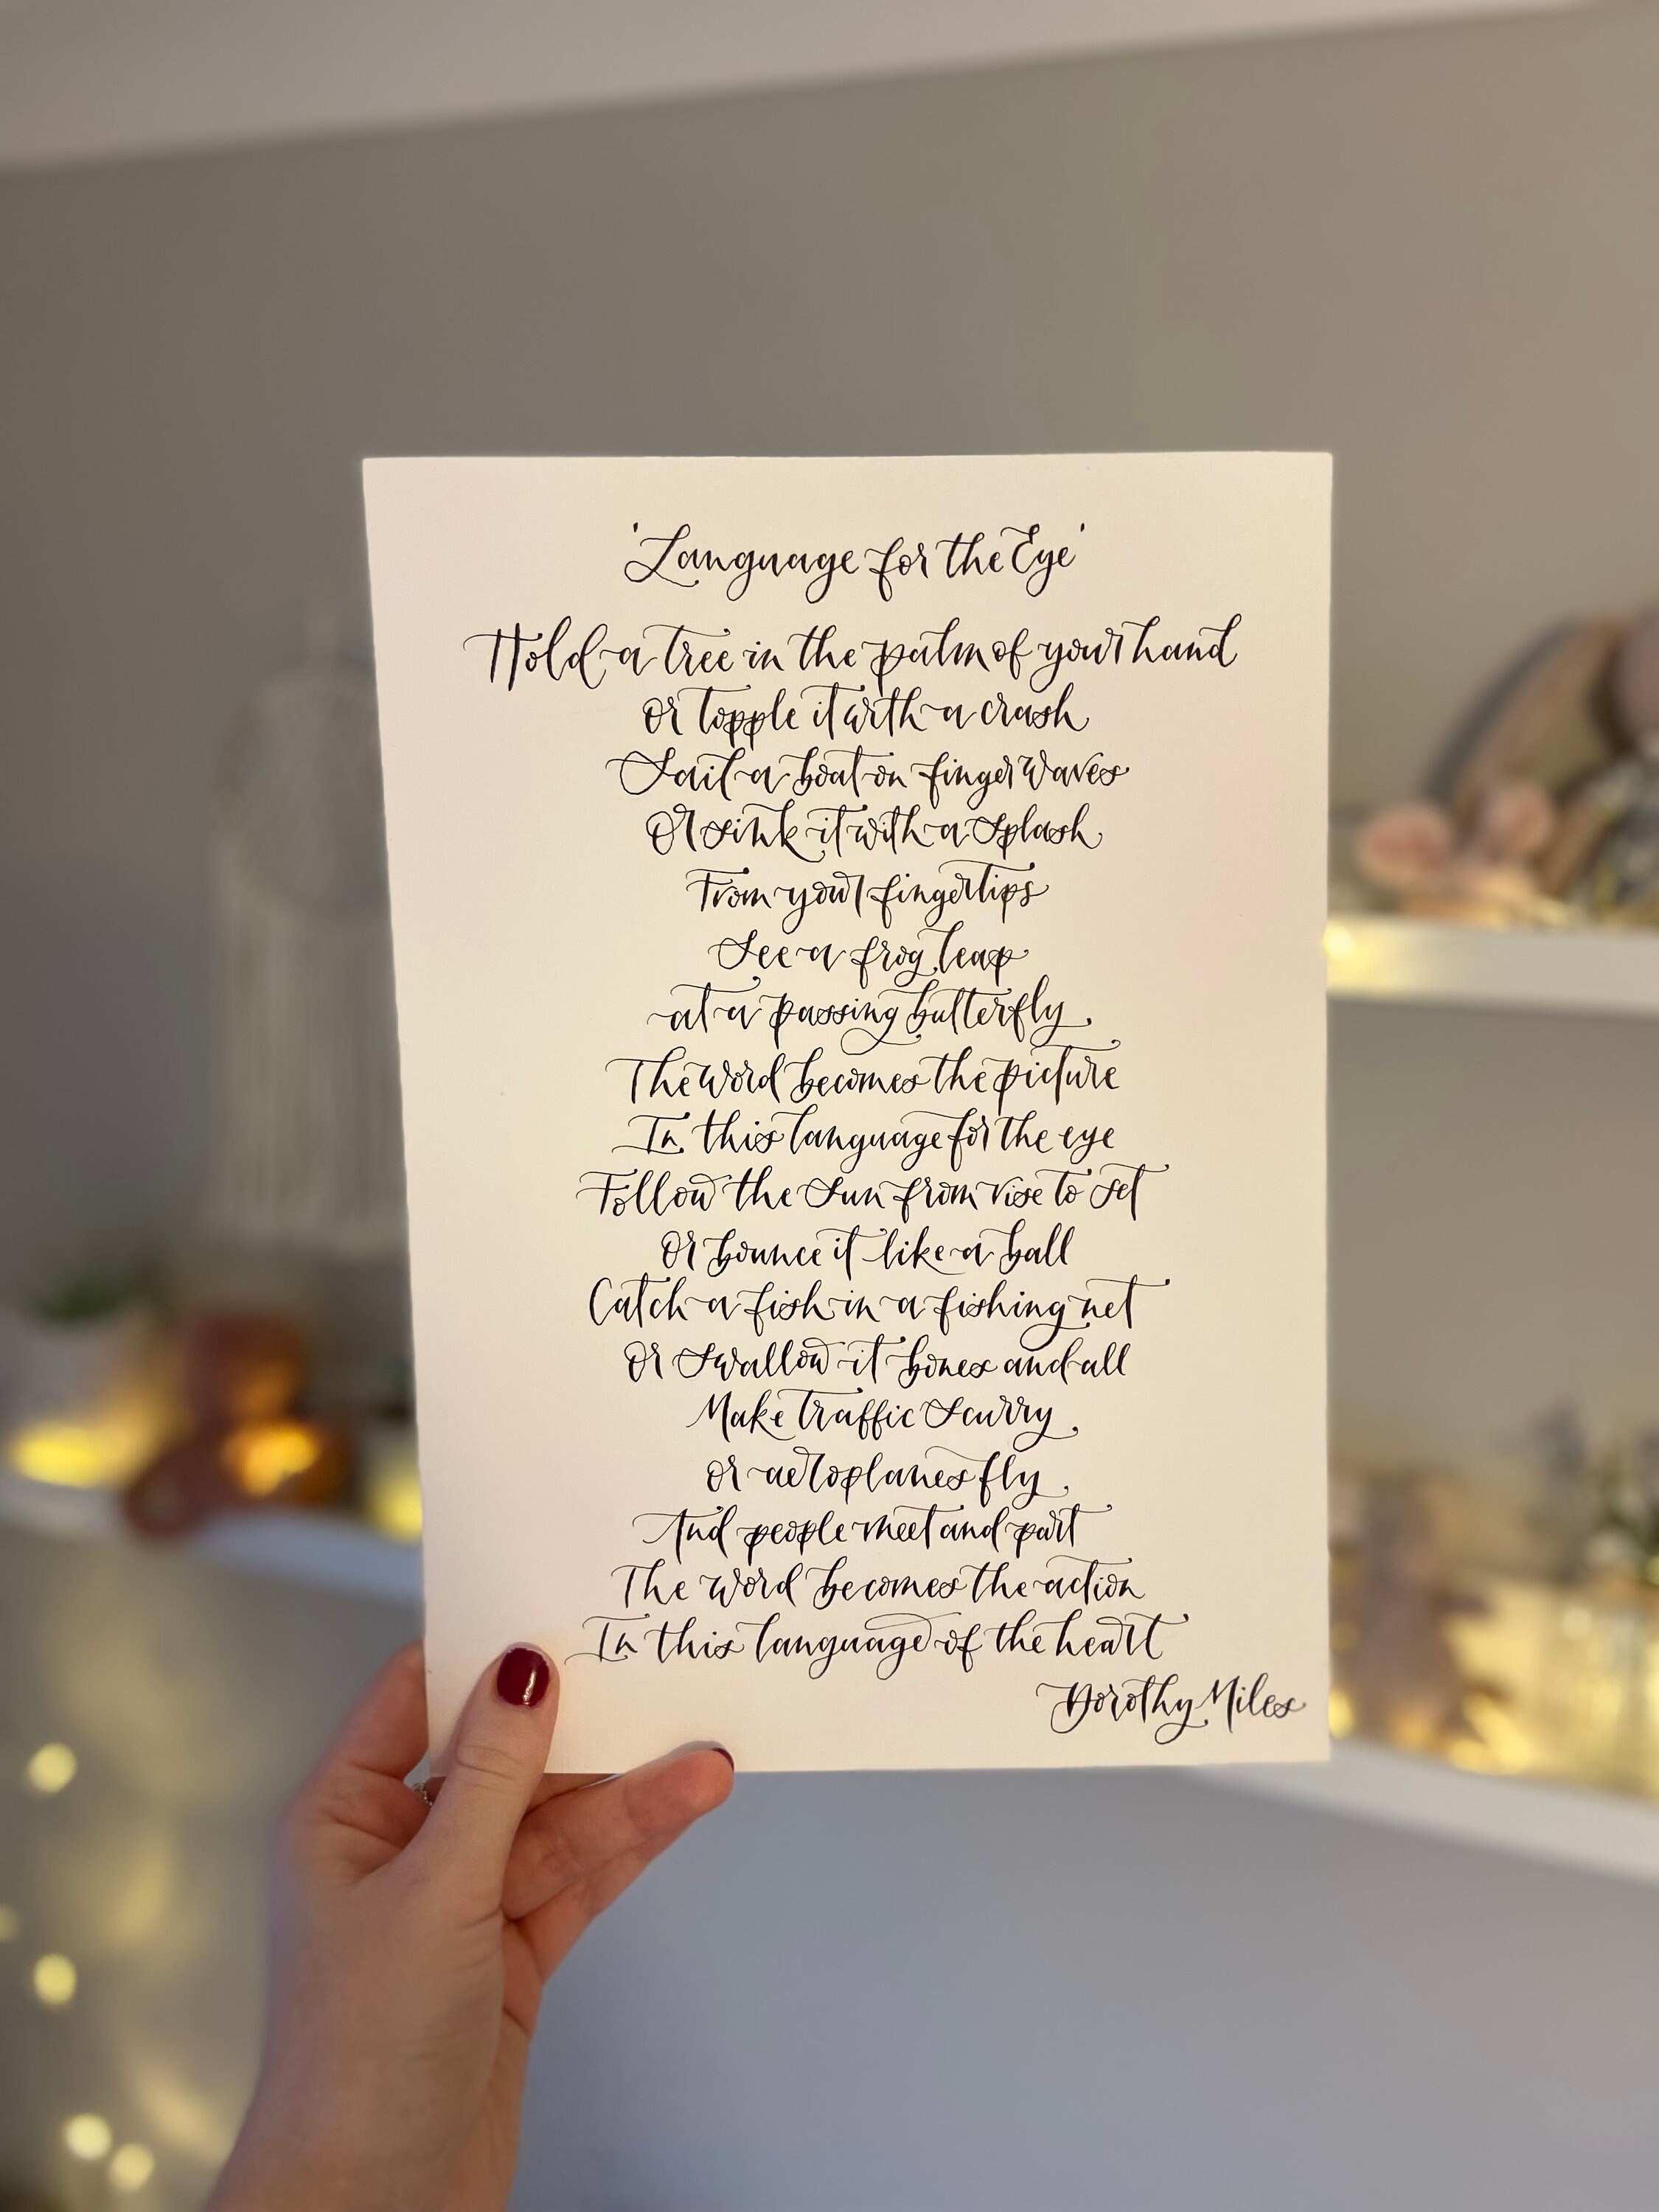 'Language for the Eye'
Hold a tree in the palm of your hand
or topple it with a crash
Sail a boat on finger waves
Or sink it with a splash
From your fingertips
See a frog leap
at a passing butterfly
The word becomes the picture
In this language for the eye
Follow the Sun from rise to set
Or bounce it like a ball
Catch a fish in a fishing net
Or swallow it bones and all
Make traffic scurry
or aeroplanes fly
And people meet and part
The word becomes the action
In this language of the heart
Dorothy Miles